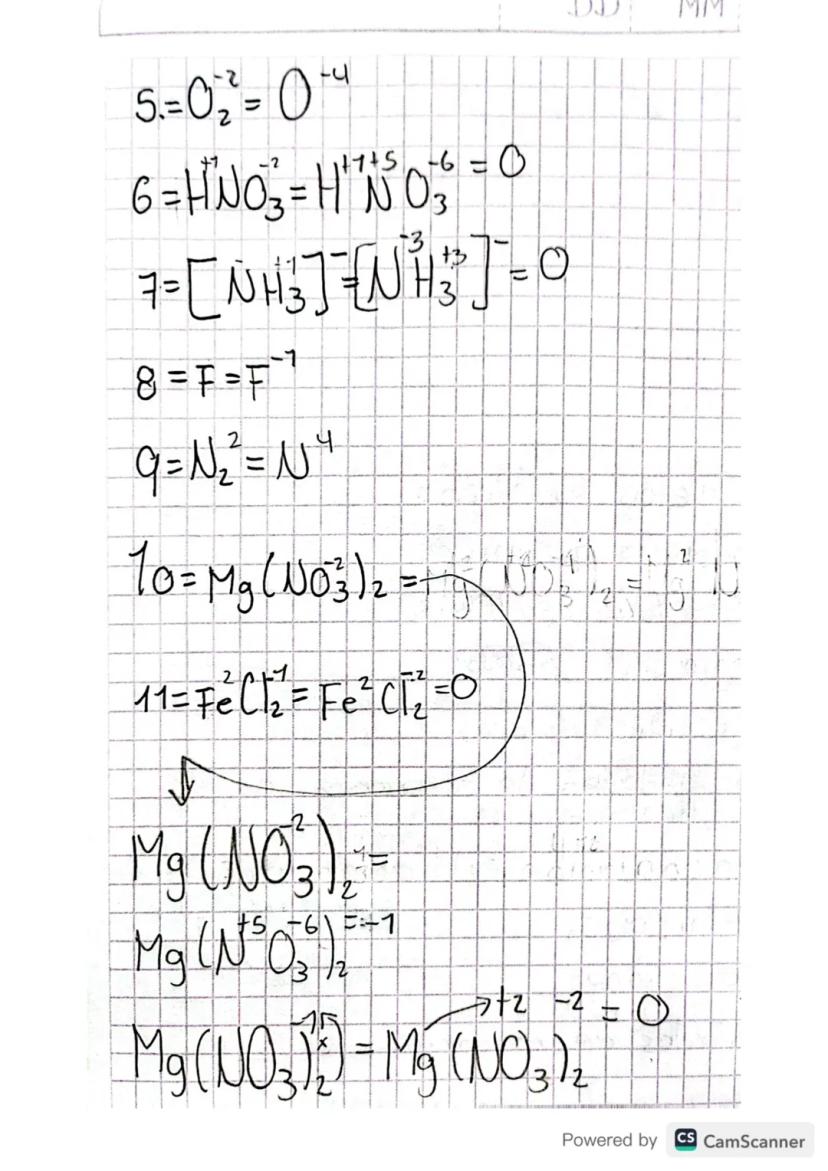 DD MM
5.=O₂⁻²= O⁻⁴
6=H⁺¹NO₃⁻²=H⁺¹N⁺⁵O₃⁻⁶=0
7=[N⁻H₃⁺¹]⁻=[N⁻³H₃⁺³]⁻=0
8=F=F⁻¹
9=N₂²=N⁴
10=Mg(NO₃⁻²)₂=
11=Fe²Cl₂⁻¹=Fe²Cl₂⁻²=0
Mg(NO₃⁻²)₂=
Mg(N⁺⁵O₃⁻⁶)₂=-1
Mg(NO₃)₂⁻¹ˣ)=Mg(NO₃)₂ +2 -2 = 0
Powered by CS CamScanner